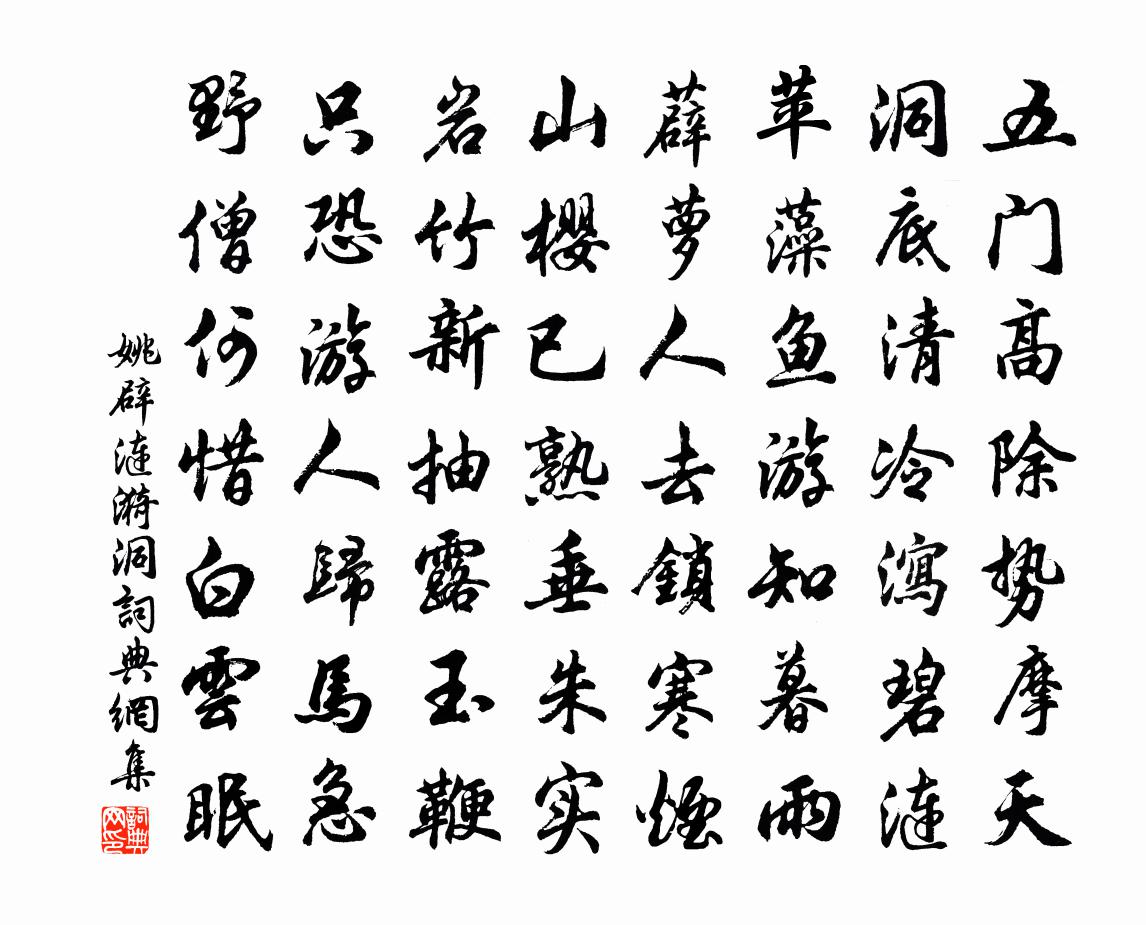 五门高除势摩天
洞底清泠瀉碧涟
苹藻鱼游知暮雨
薜萝人去鎖寒煙
山櫻已熟垂朱实
岩竹新抽露玉鞭
只恐游人歸馬急
野僧何惜白雲眠
姚辟涟漪洞詞典網集
詞典网印